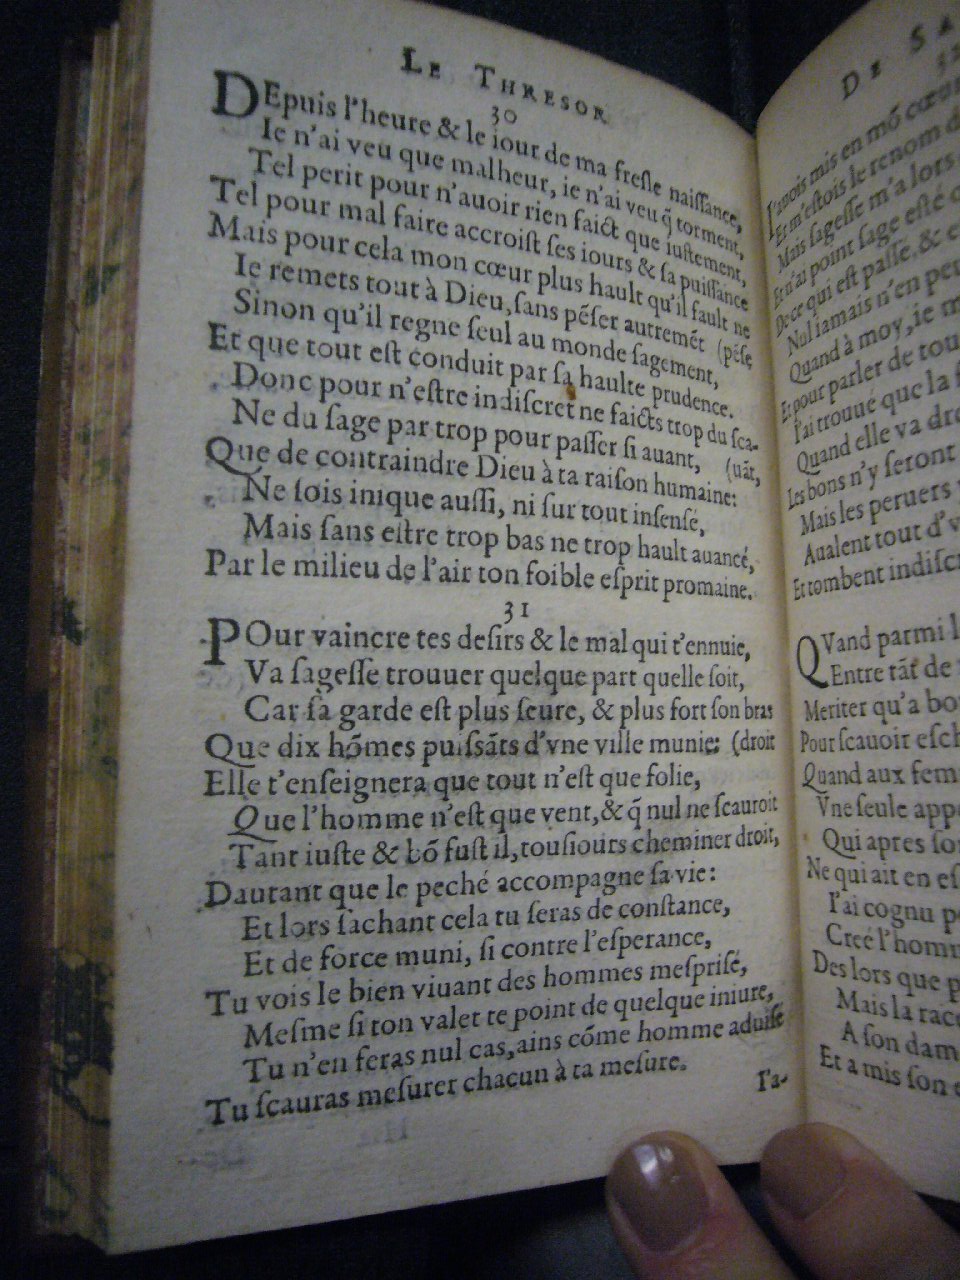 LE THRESOR
30
DEpuis l'heure & le iour de ma fresle naissance,
Ie n'ai veu que malheur, ie n'ai veu q̃ torment,
Tel perit pour n'auoir rien faict que iustement,
Tel pour mal faire accroist ses iours & sa puissance
Mais pour cela mon cœur plus hault qu'il fault ne
Ie remets tout à Dieu, sans pẽser autremẽt (pẽse
Sinon qu'il regne seul au monde sagement,
Et que tout est conduit par sa haulte prudence.
Donc pour n'estre indiscret ne faicts trop du sca-
Ne du sage par trop pour passer si auant, (uãt,
Que de contraindre Dieu à ta raison humaine:
Ne sois inique aussi, ni sur tout insensé,
Mais sans estre trop bas ne trop hault auancé,
Par le milieu de l'air ton foible esprit promaine.
31
POur vaincre tes desirs & le mal qui t'ennuie,
Va sagesse trouuer quelque part quelle soit,
Car sa garde est plus seure, & plus fort son bras
Que dix hõmes puissãts d'vne ville munie: (droit
Elle t'enseignera que tout n'est que folie,
Que l'homme n'est que vent, & q̃ nul ne scauroit
Tant iuste & bõ fust il, tousiours cheminer droit,
Dautant que le peché accompagne sa vie:
Et lors sachant cela tu seras de constance,
Et de force muni, si contre l'esperance,
Tu vois le bien viuant des hommes mesprisé,
Mesme si ton valet te point de quelque iniure,
Tu n'en feras nul cas, ains cõme homme aduise
Tu scauras mesurer chacun à ta mesure.
I'a-
DE SA
I'auois mis en mõ cœur
Et m'estois le renom d
Mais sagesse m'a lors
Et n'ai point sage esté
De ce qui est passé, & e
Nul iamais n'en peu
Quand à moy, ie m
Et pour parler de tou
I'ai trouué que la f
Quand elle va dro
Les bons n'y seront
Mais les peruers
Aualent tout d'v
Et tombent indiscr
QVand parmi l
Entre tãt de
Meriter qu'a bo
Pour scauoir esch
Quand aux fem
Vne seule appe
Qui apres so
Ne qui ait en es
I'ai cognu p
Creé l'homm
Des lors que p
Mais la race
A son dam
Et a mis son e